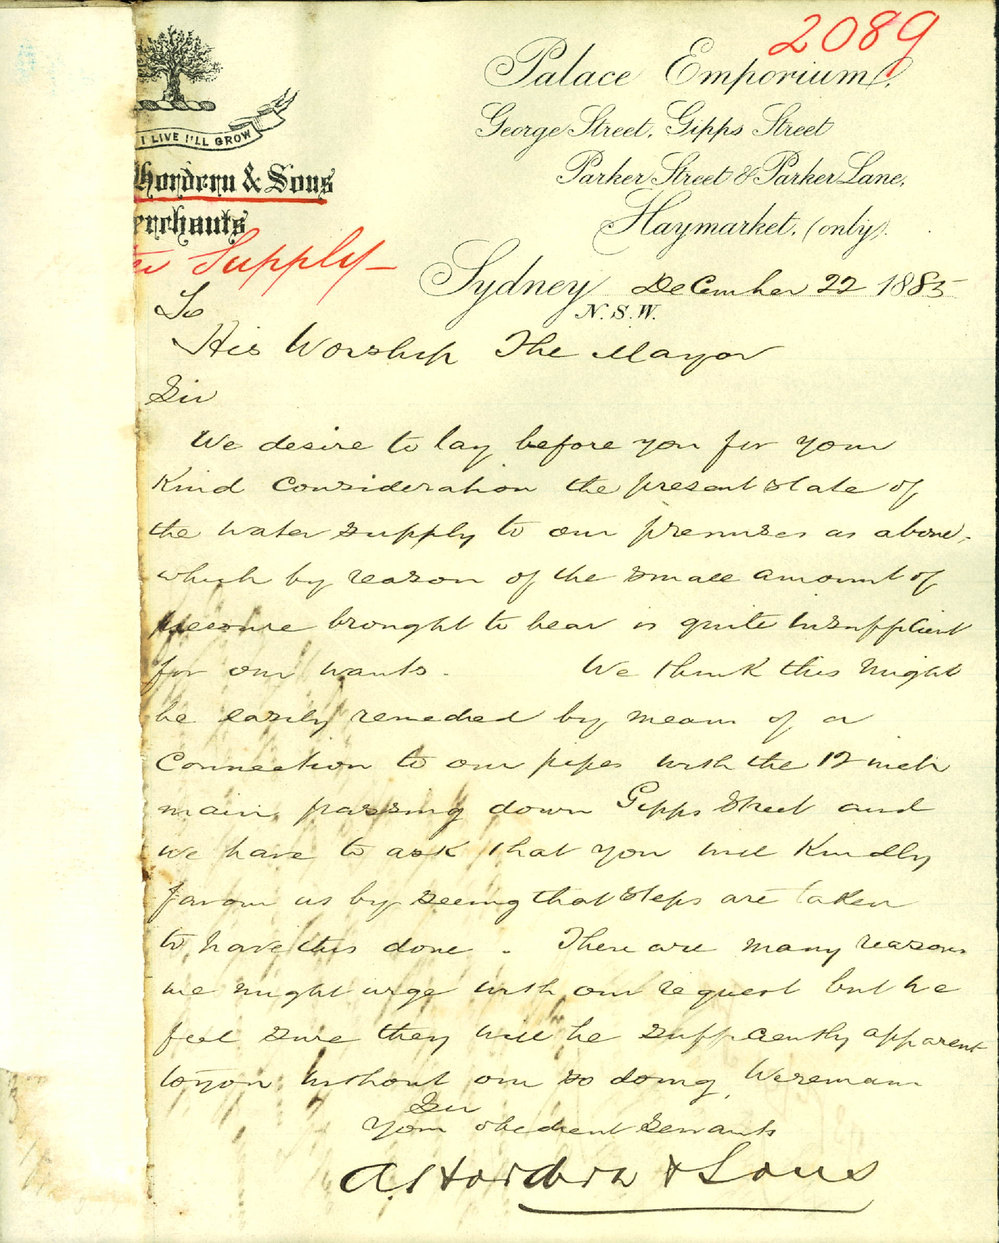 2089
I LIVE I'LL GROW
Hordern & Sons
erchants
Supply
Palace Emporium,
George Street, Gipps Street
Parker Street & Parker Lane,
Haymarket, (only).
Sydney December 22 1885
N.S.W.
To
His Worship The Mayor
Sir
We desire to lay before you for your
Kind Consideration the present state of
the water supply to our premises as above,
which by reason of the small amount of
pressure brought to bear is quite insufficient
for our wants. We think this might
be easily remedied by means of a
Connection to our pipes with the 12 inch
main passing down Gipps Street and
we have to ask that you will Kindly
favour us by seeing that steps are taken
to have this done. There are many reasons
we might urge with our request but we
feel sure they will be sufficiently apparent
to you without our so doing. We remain
Sir
Your obedient Servants
A. Hordern & Sons